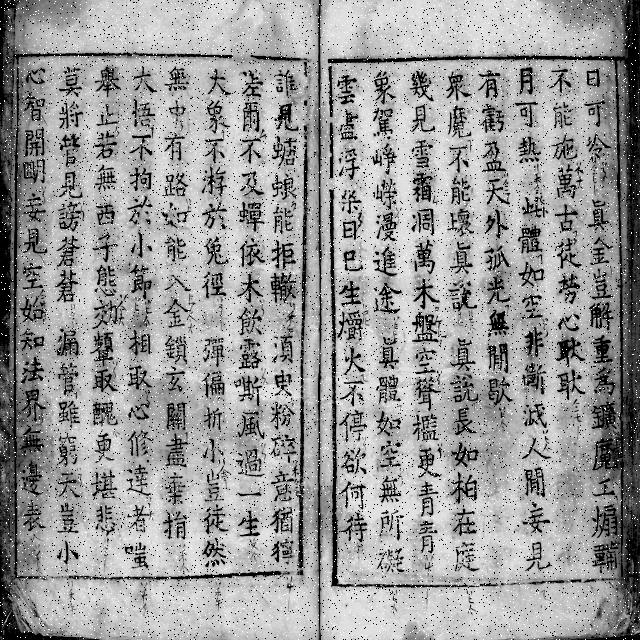 日可冷 真金豈解重為鑛廬工煽鞴
不能施萬古徒勞心耿耿
月可熱 此體如空非斷滅人間妄見
有虧盈天外孤光無間歇
眾魔不能壞真說 真說長如柏在庭
幾見雪霜凋萬木盤空聲檻更青青
象駕崢嶸漫進途 真體如空無所礙
雲盡浮柒日巳生爝火不停欲何待
誰見螗螂能拒轍 須臾粉碎意猶獰
差爾不及蟬依木飲露嘶風過一生
大象不遊於兔徑 彈偏折小豈徒然
無中有路如能入金鎖玄關盡棄捐
大悟不拘於小節 相取心修達者嗤
舉止若無西子態效顰取醜更堪悲
莫將管見謗蒼蒼 漏管雖窮天豈小
心智開明妄見空始知法界無邊表